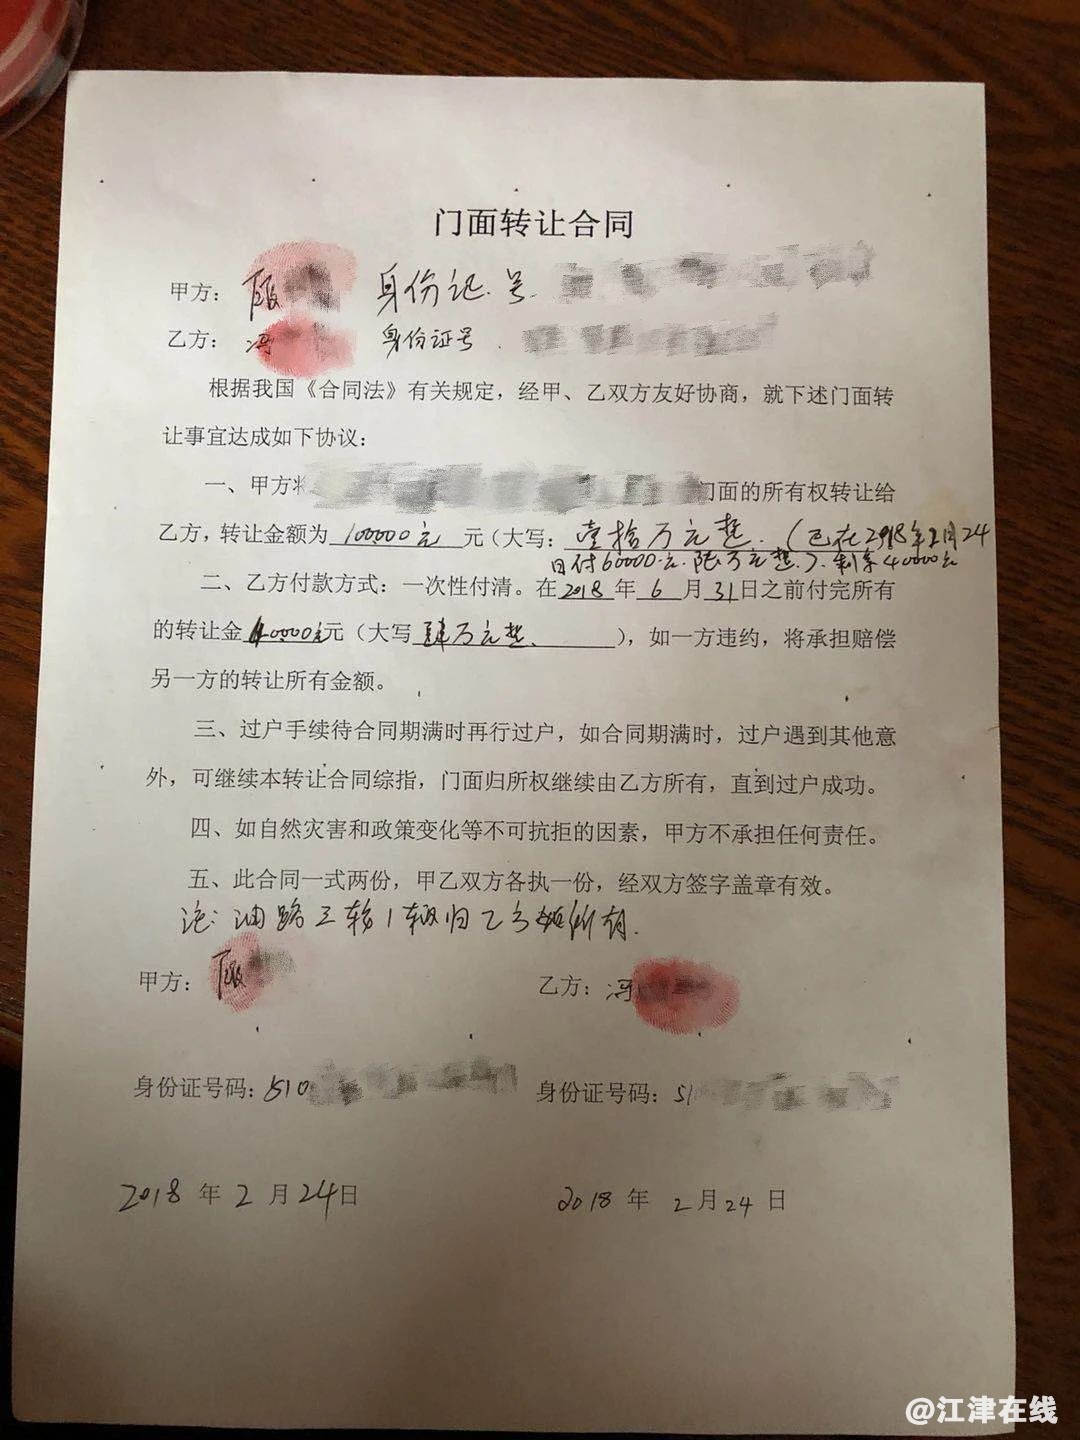 门面转让合同
甲方： 身份证号
乙方：冯 身份证号
根据我国《合同法》有关规定，经甲、乙双方友好协商，就下述门面转
让事宜达成如下协议：
一、甲方将 门面的所有权转让给
乙方，转让金额为 100000元 元（大写： 壹拾万元整.（已在2018年2月24
日付60000.元.陆万元整.）.剩余40000元
二、乙方付款方式：一次性付清。在2018年 6 月 31日之前付完所有
的转让金40000元元（大写 肆万元整、 ），如一方违约，将承担赔偿
另一方的转让所有金额。
三、过户手续待合同期满时再行过户，如合同期满时，过户遇到其他意
外，可继续本转让合同综指，门面归所权继续由乙方所有，直到过户成功。
四、如自然灾害和政策变化等不可抗拒的因素，甲方不承担任何责任。
五、此合同一式两份，甲乙双方各执一份，经双方签字盖章有效。
注：油路三轮1辆归乙方 所有.
甲方： 乙方：冯
身份证号码：510 身份证号码：51
2018 年 2 月 24日 2018 年 2月 24 日
@江津在线